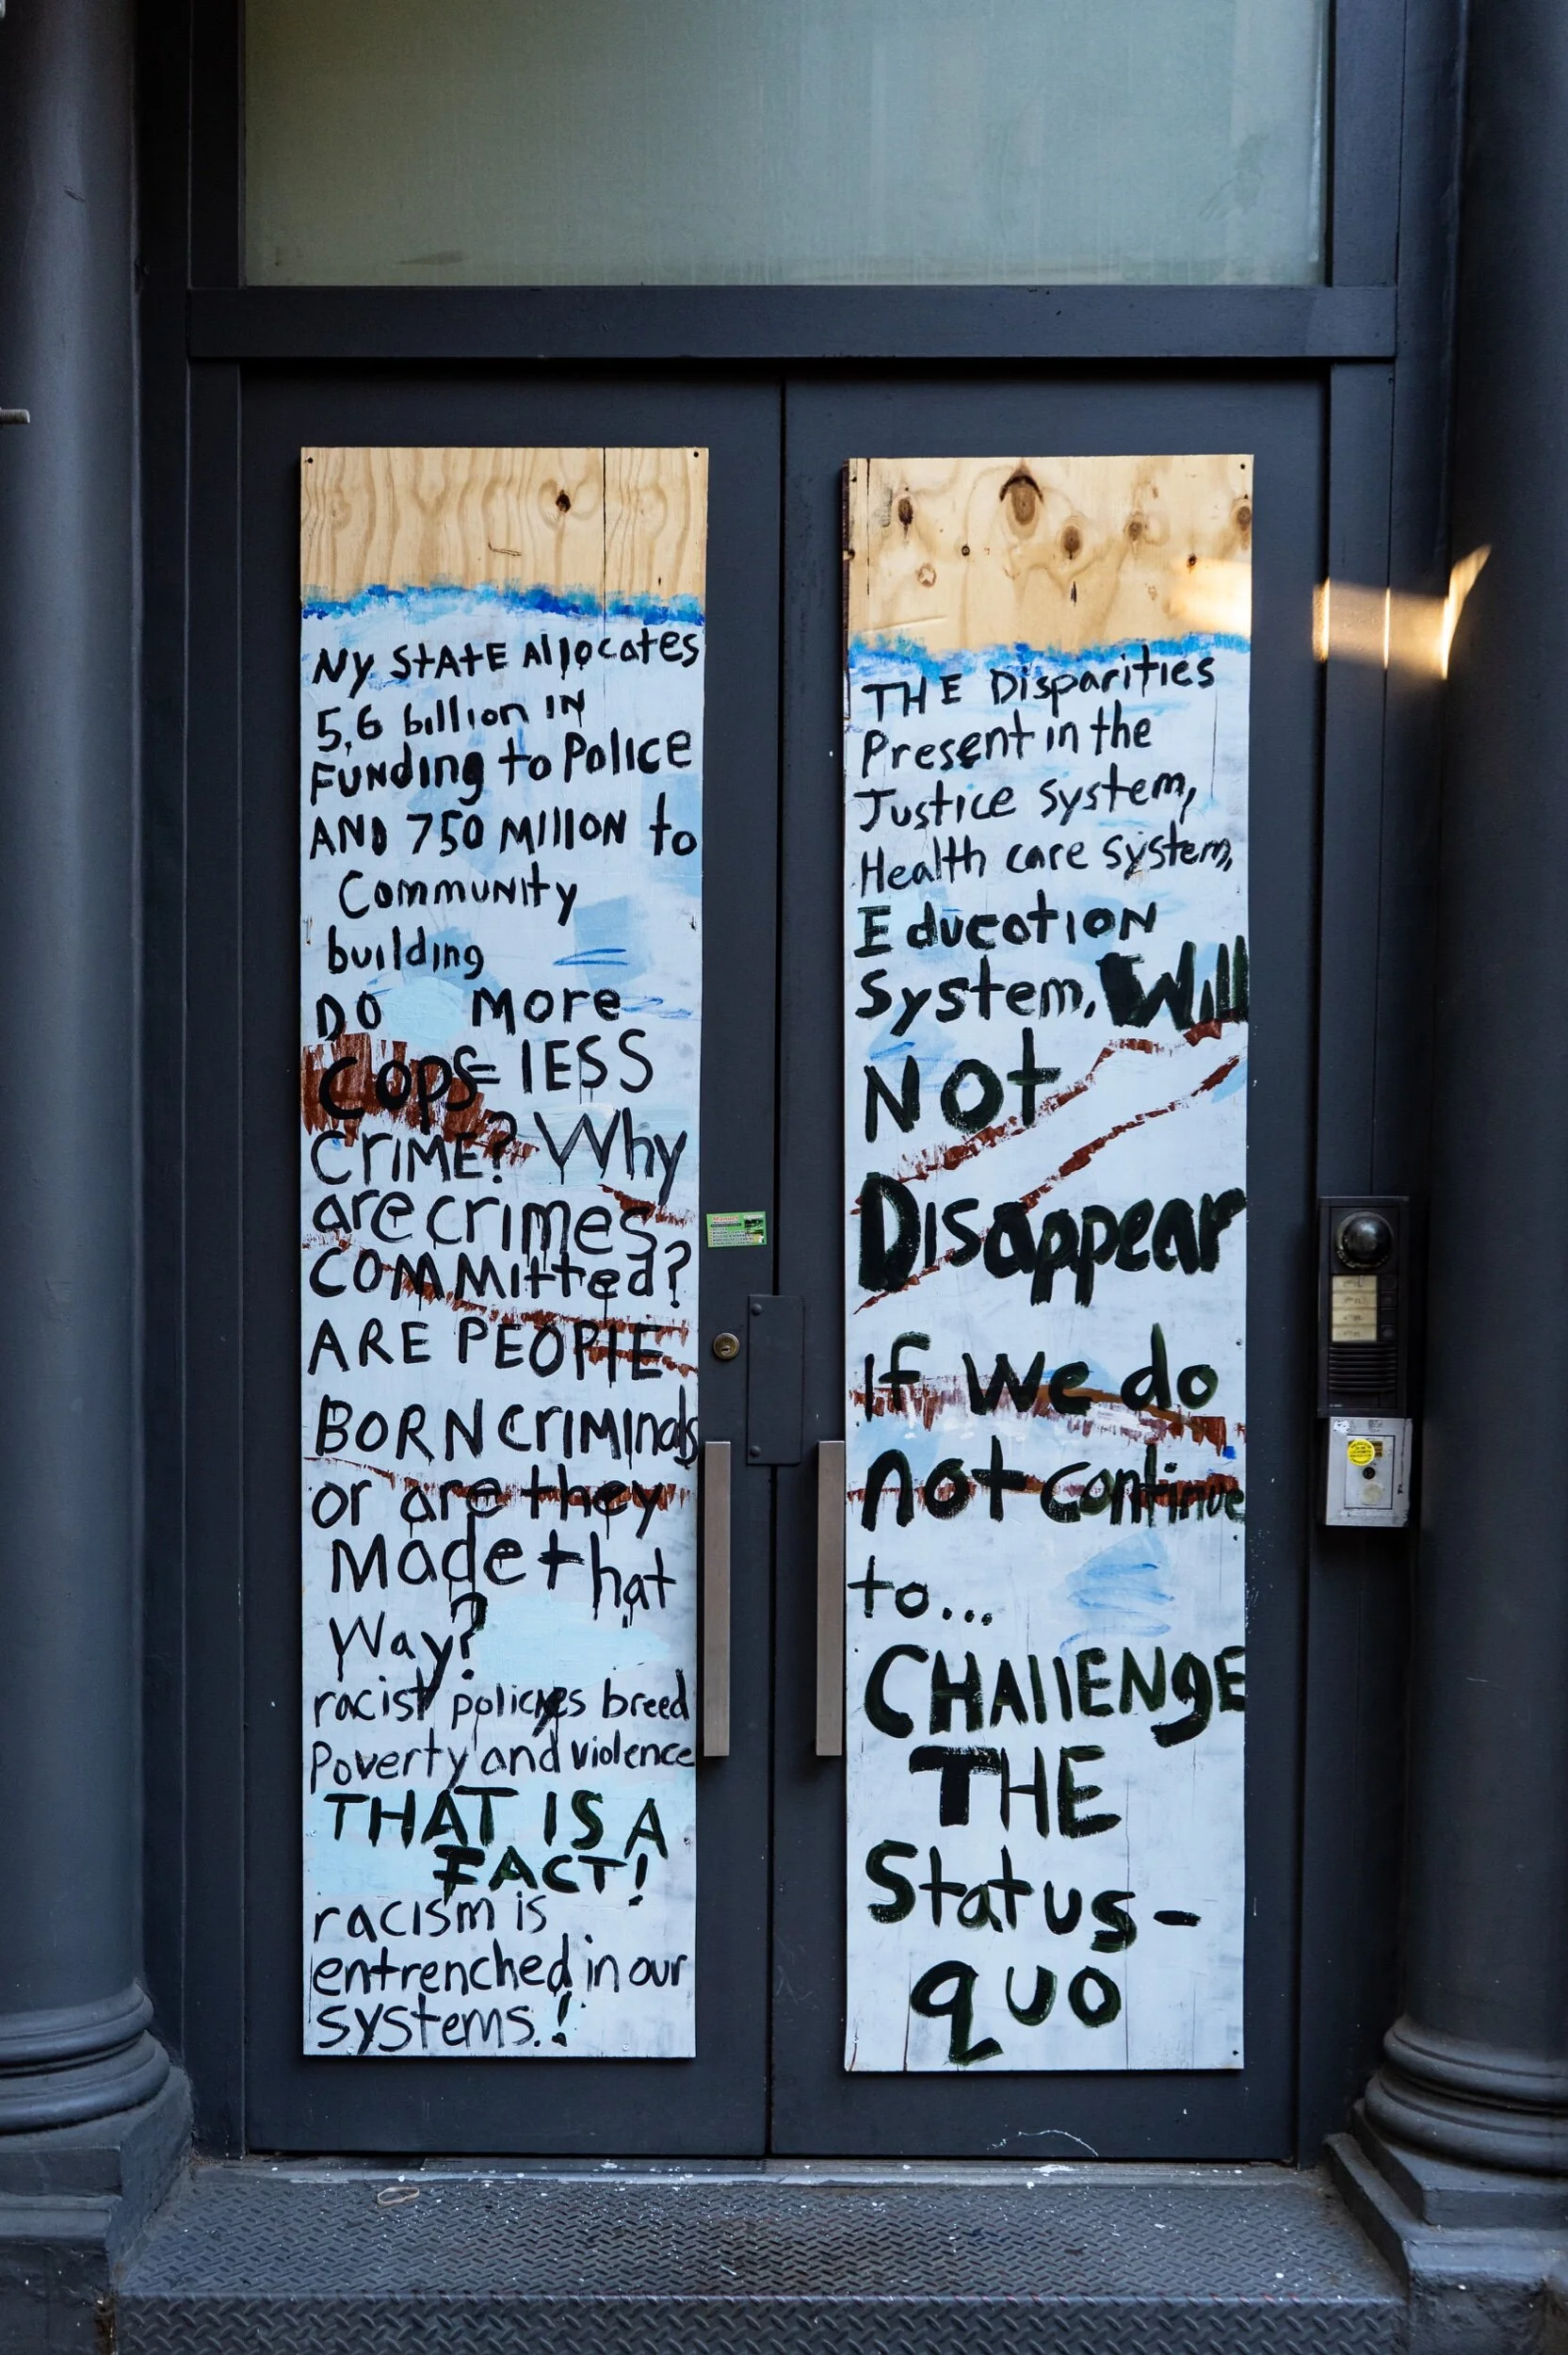 NY STATE Allocates
5,6 billion IN
FUNding to Police
AND 750 MIllON to
Community
building
DO more
COPS= lESS
CRIME? Why
are crimes
COMMitted?
ARE PEOPlE
BORN criMINals
or are they
Made that
Way?
racist policies breed
Poverty and violence
THAT IS A
FACT!
racism is
entrenched in our
systems.!
THE Disparities
Present in the
Justice system,
Health care system,
Education
System, Will
Not
Disappear
If We do
not continue
to...
CHAllENgE
THE
Status-
quo